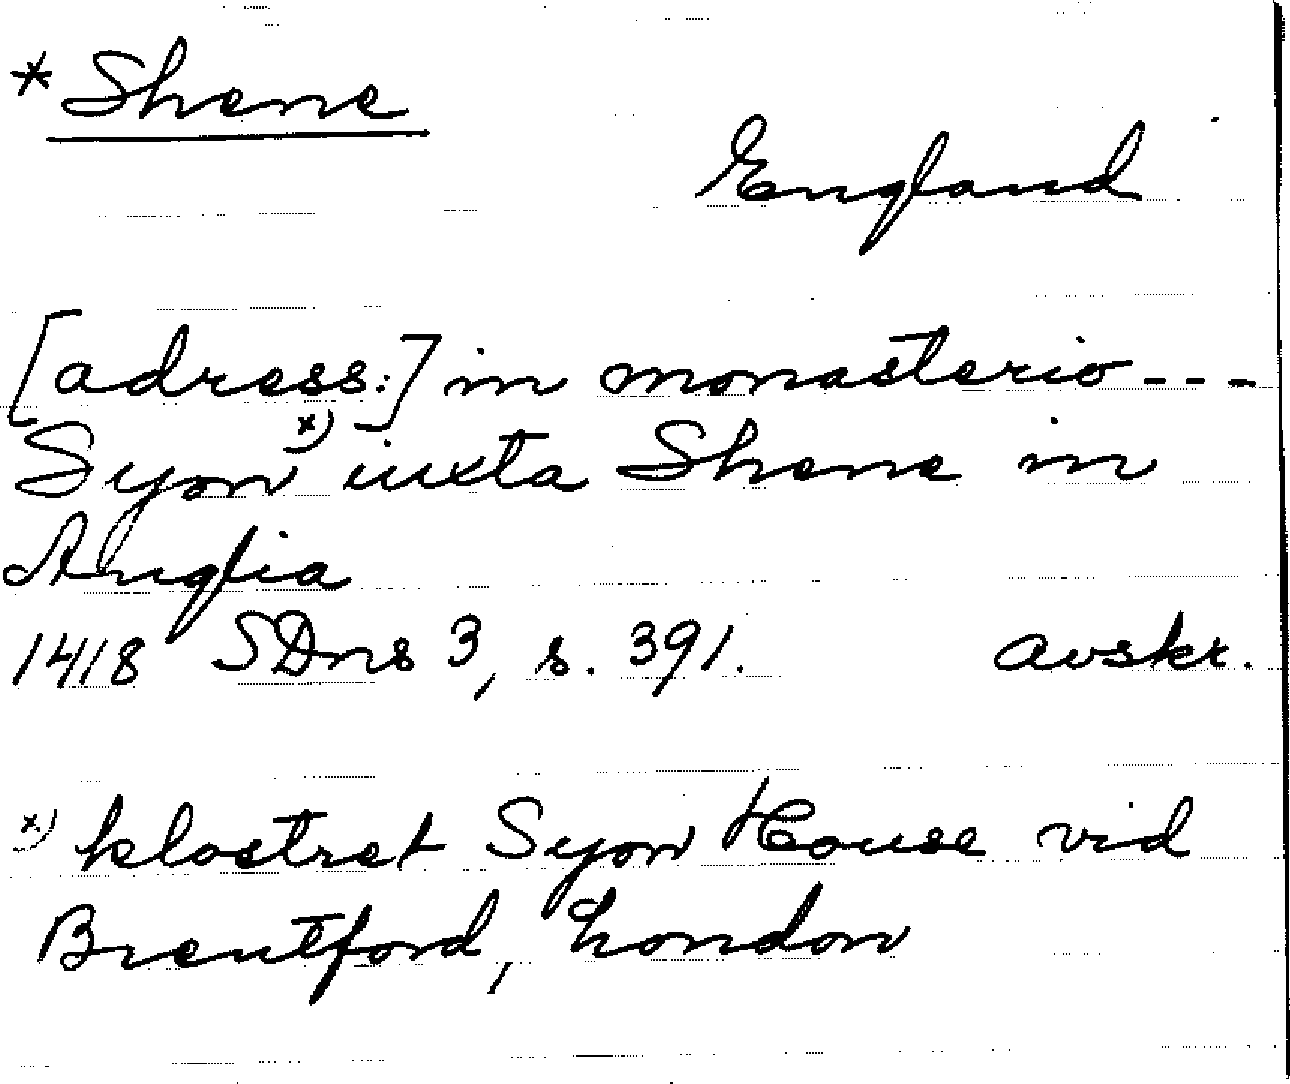 * Shene
England
[adress:] in monasterio - - -
Syon x) iuxta Shene in
Anglia
1418 SDns 3, s. 391. avskr.
x) klostret Syon House vid
Brentford, London